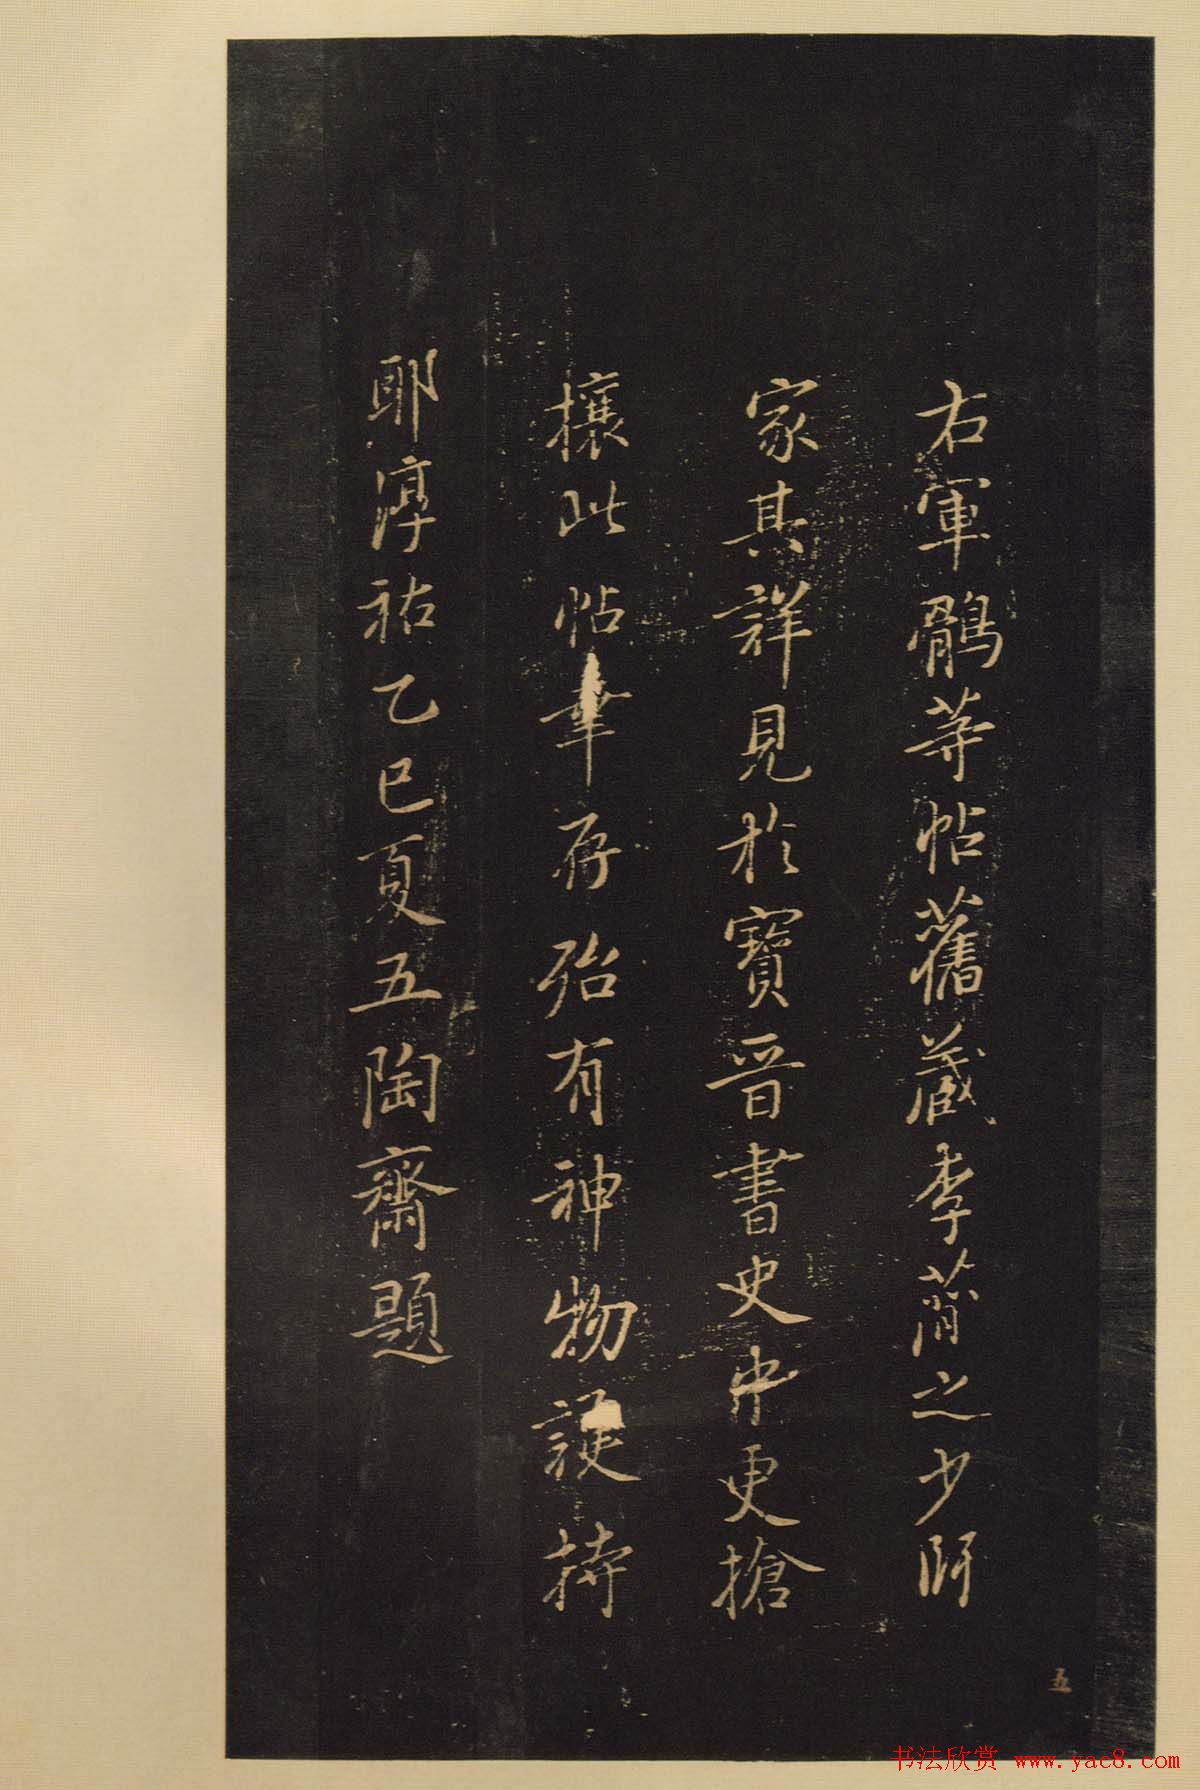 右軍鶻等帖舊藏李蕳之少師
家其詳見於寶晉書史中更搶
攘此帖幸存殆有神物護持
耶淳祐乙巳夏五陶齋題
五
书法欣赏 www.yac8.com